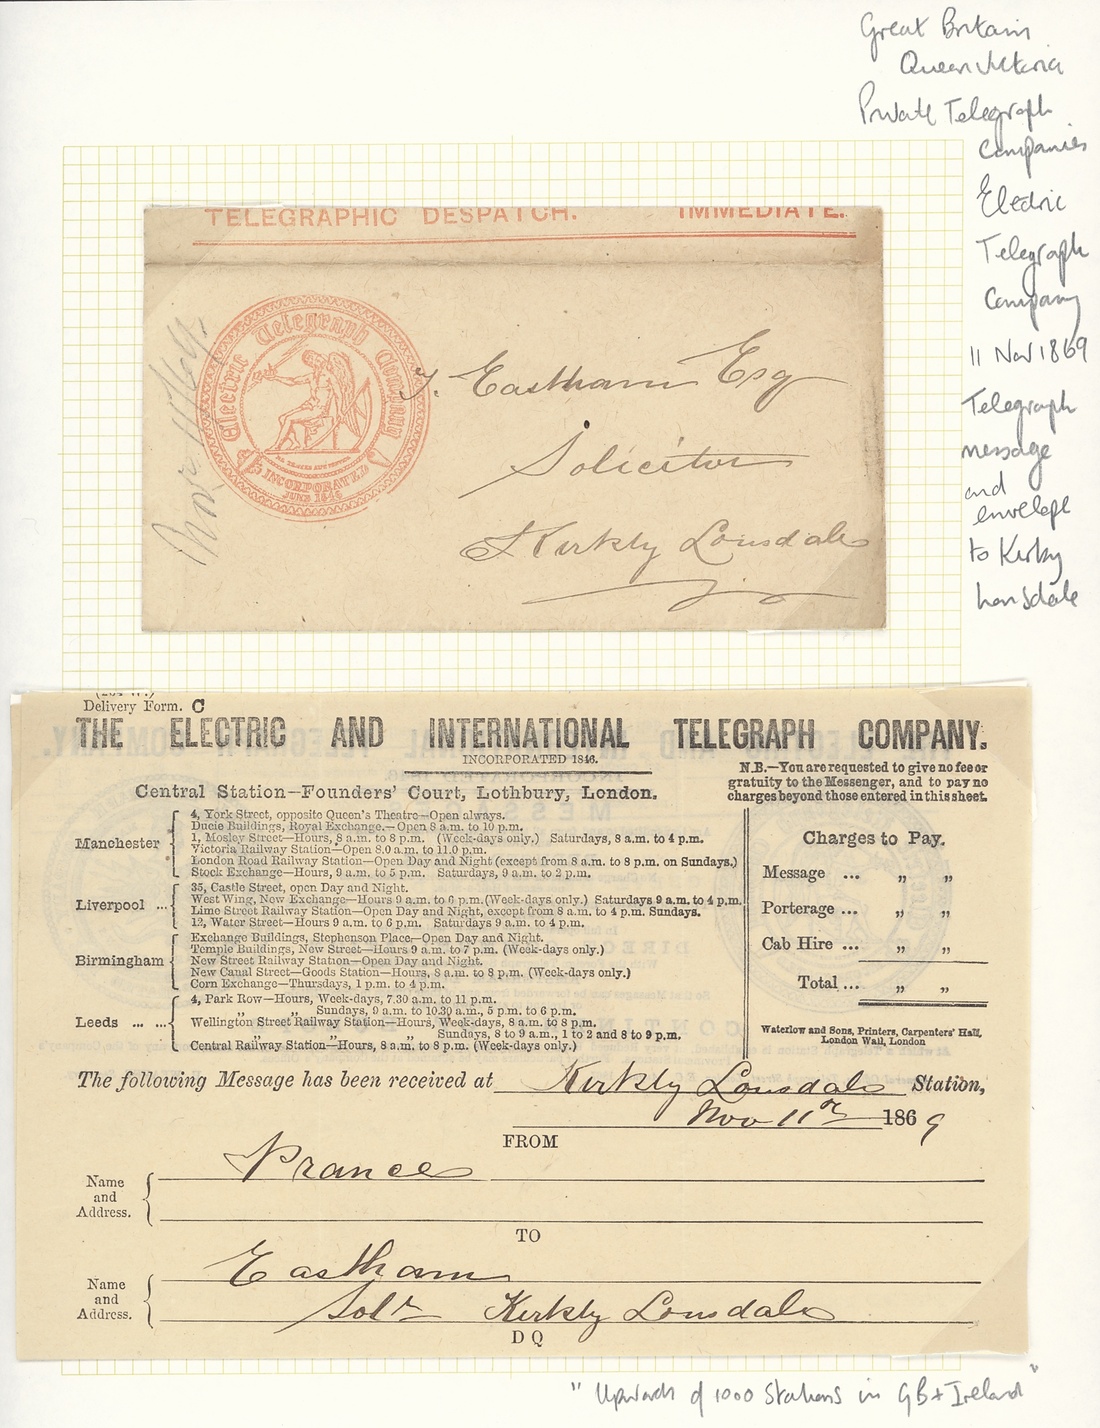 Great Britain
Queen Victoria
Private Telegraph
Companies
Electric
Telegraph
Company
11 Nov 1869
Telegraph
message
and
envelope
to Kirkby
Lonsdale
TELEGRAPHIC DESPATCH. IMMEDIATE.
Electric Telegraph Company
INCORPORATED
JUNE 1846
Nov 11/69.
T. Eastham Esq
Solicitor
Kirkby Lonsdale
Delivery Form. C
THE ELECTRIC AND INTERNATIONAL TELEGRAPH COMPANY.
INCORPORATED 1846.
Central Station—Founders' Court, Lothbury, London.
N.B.—You are requested to give no fee or
gratuity to the Messenger, and to pay no
charges beyond those entered in this sheet.
Manchester
4, York Street, opposite Queen's Theatre—Open always.
Ducie Buildings, Royal Exchange.—Open 8 a.m. to 10 p.m.
1, Mosley Street—Hours, 8 a.m. to 8 p.m. (Week-days only.) Saturdays, 8 a.m. to 4 p.m.
Victoria Railway Station—Open 8.0 a.m. to 11.0 p.m.
London Road Railway Station—Open Day and Night (except from 8 a.m. to 8 p.m. on Sundays.)
Stock Exchange—Hours, 9 a.m. to 5 p.m. Saturdays, 9 a.m. to 2 p.m.
Liverpool ...
35, Castle Street, open Day and Night.
West Wing, New Exchange—Hours 9 a.m. to 6 p.m. (Week-days only.) Saturdays 9 a.m. to 4 p.m.
Lime Street Railway Station—Open Day and Night, except from 8 a.m. to 4 p.m. Sundays.
12, Water Street—Hours 9 a.m. to 6 p.m. Saturdays 9 a.m. to 4 p.m.
Birmingham
Exchange Buildings, Stephenson Place,—Open Day and Night.
Temple Buildings, New Street—Hours 9 a.m. to 7 p.m. (Week-days only.)
New Street Railway Station—Open Day and Night.
New Canal Street—Goods Station—Hours, 8 a.m. to 8 p.m. (Week-days only.)
Corn Exchange—Thursdays, 1 p.m. to 4 p.m.
Leeds ... ...
4, Park Row—Hours, Week-days, 7.30 a.m. to 11 p.m.
„ „ Sundays, 9 a.m. to 10.30 a.m., 5 p.m. to 6 p.m.
Wellington Street Railway Station—Hours, Week-days, 8 a.m. to 8 p.m.
„ „ „ Sundays, 8 to 9 a.m., 1 to 2 and 8 to 9 p.m.
Central Railway Station—Hours, 8 a.m. to 8 p.m. (Week-days only.)
Charges to Pay.
Message ... „ „
Porterage ... „ „
Cab Hire ... „ „
Total ... „ „
Waterlow and Sons, Printers, Carpenters' Hall,
London Wall, London
The following Message has been received at Kirkby Lonsdale Station,
Nov 11th 1869
FROM
Name
and
Address.
Prance
TO
Name
and
Address.
Eastham
Solr Kirkby Lonsdale
D Q
"Upwards of 1000 Stations in GB + Ireland"